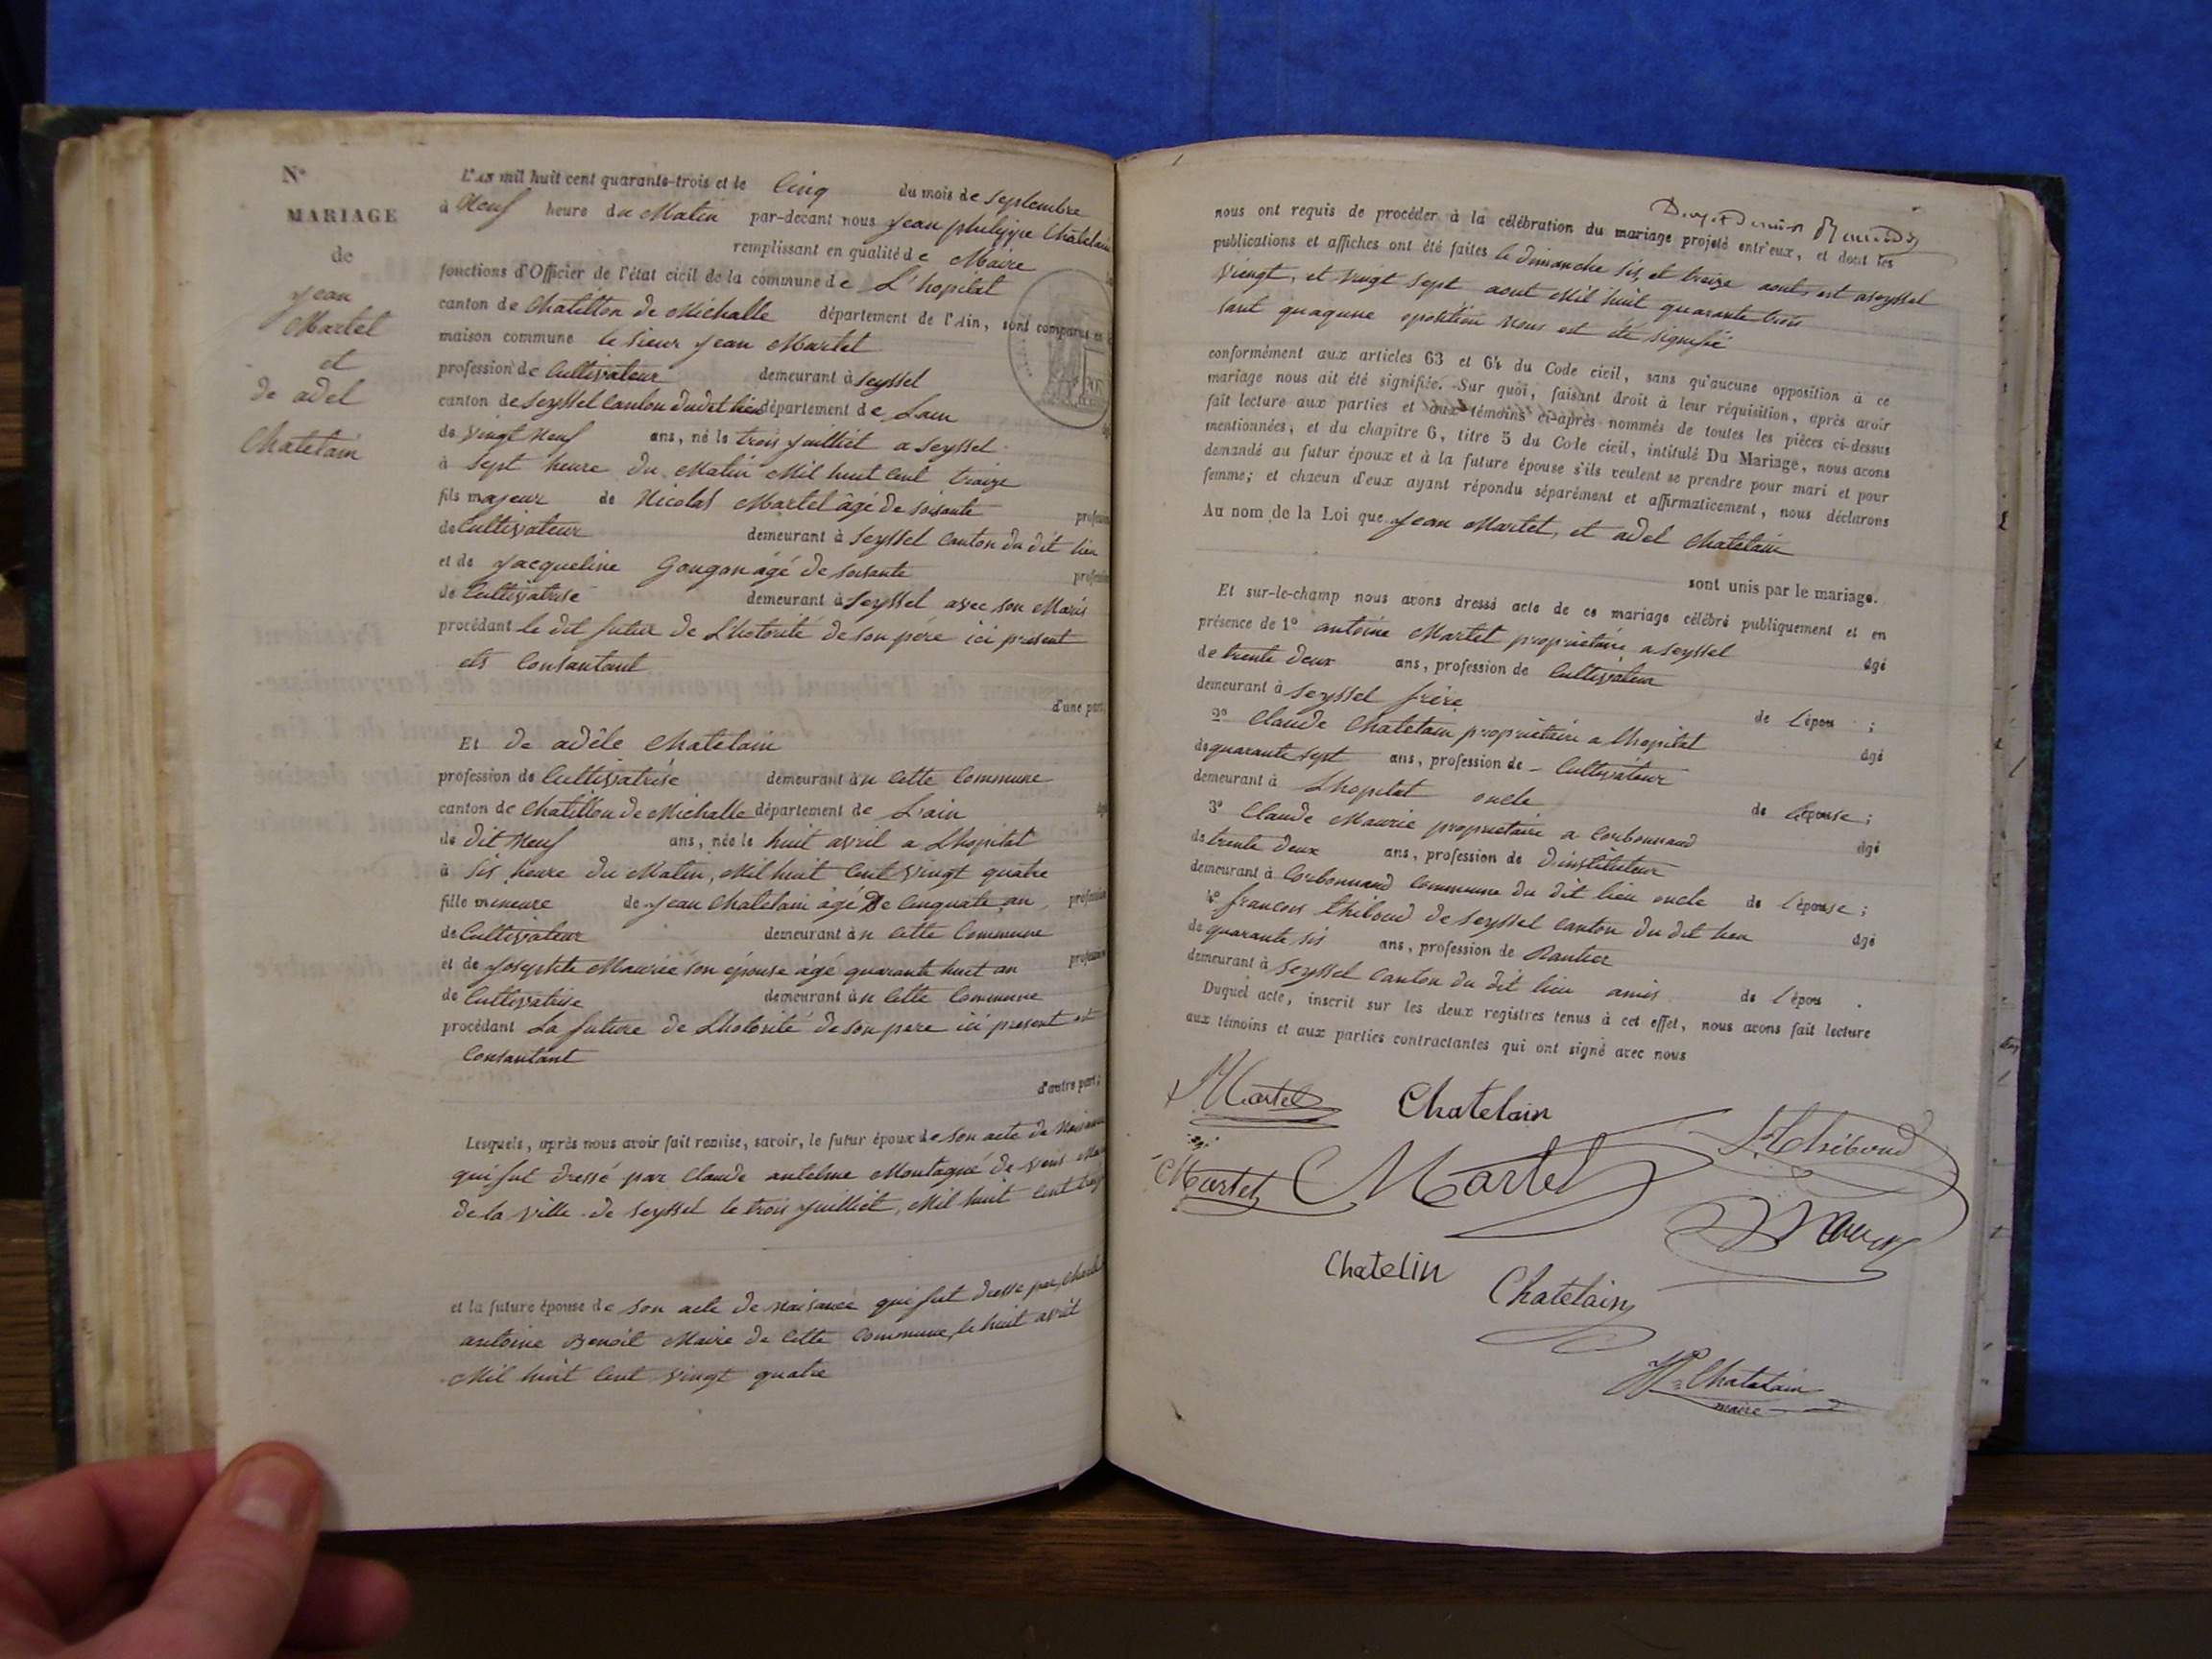 N°
MARIAGE
de
Jean
Martel
et
de adel
Chatelain
L'AN mil huit cent quarante-trois et le Cinq du mois de Septembre
à Neuf heure du Matin par-devant nous Jean philippe Chatelain
remplissant en qualité de Maire
fonctions d'Officier de l'état civil de la commune de L'hopital
canton de Chatillon de Michalle département de l'Ain, sont comparus en
maison commune le Sieur Jean Martel
profession de Cultivateur demeurant à Seyssel
canton de Seyssel Canton dudit lieu département de Lain
de vingt Neuf ans, né le trois juilliet a Seyssel
à Sept heure du Matin Mil huit Cent traize
fils majeur de Nicolas Martel âgé de soisante profession
de Cultivateur demeurant à Seyssel Canton du dit lieu
et de Jacqueline Gougon âgé de soisante profession
de Cultivatrise demeurant à Seyssel avec son Maris
procédant le dit futur de L'hotorité de son père ici présent
ets Consantant
d'une part,
Et de adèle Chatelain
profession de Cultivatrise demeurant à n Cette Commune
canton de Chatillon de Michalle département de L'ain
de dit Neuf ans, née le huit avril a Lhopital
à Sis heure du Matin, Mil huit Cent vingt quatre
fille mineure de Jean Chatelain âgé De Cinquate an, profession
de Cultivateur demeurant à n Cette Commune
et de Josephte Maurie son épouse âgé quarante huit an profession
de Cultivatrise demeurant à n Cette Commune
procédant La future de Lhotorité de son pere ici present et
Consantant
d'autre part;
Lesquels, après nous avoir fait remise, savoir, le futur époux de son acte de Naissance
qui fut dressé par Claude antelme Montagné de vens
de la ville de Seyssel le trois juilliet, Mil huit Cent
et la future épouse de son acte de naisance qui fut dresse par
antoine Benoit Maire de Cette Commune, le huit avril
Mil huit Cent vingt quatre
nous ont requis de procéder à la célébration du mariage projeté entr'eux, et dont les
publications et affiches ont été faites le dimanche Sis, et traize aout, est aseyssel
viengt, et vingt Sept aout Mil huit quarante trois
sant quaqune oposition Nous est été Signifié
conformément aux articles 63 et 64 du Code civil, sans qu'aucune opposition à ce
mariage nous ait été signifiée. Sur quoi, faisant droit à leur réquisition, après avoir
fait lecture aux parties et aux témoins ci-après nommés de toutes les pièces ci-dessus
mentionnées, et du chapitre 6, titre 5 du Code civil, intitulé Du Mariage, nous avons
demandé au futur époux et à la future épouse s'ils veulent se prendre pour mari et pour
femme; et chacun d'eux ayant répondu séparément et affirmativement, nous déclarons
Au nom de la Loi que Jean Martel, et adel Chatelain
sont unis par le mariage.
Et sur-le-champ nous avons dressé acte de ce mariage célébré publiquement et en
présence de 1° antoine Martel proprietaire a Seyssel âgé
de trente deux ans, profession de Cultivateur
demeurant à Seyssel frère de l'époux ;
2° Claude Chatelain proprietaire a Lhopital âgé
de quarante sept ans, profession de Cultivateur
demeurant à Lhopital oncle de l'épouse;
3° Claude Maurie proprietaire a Corbonnaud âgé
de trente deux ans, profession de D'instituteur
demeurant à Corbonnaud Commune du dit lieu oncle de l'épouse;
4° francois thiboud de Seyssel Canton du dit lieu âgé
de quarante sis ans, profession de Rantier
demeurant à Seyssel Canton du dit lieu amis de l'époux .
Duquel acte, inscrit sur les deux registres tenus à cet effet, nous avons fait lecture
aux témoins et aux parties contractantes qui ont signé avec nous
Martel Chatelain
Thiboud
Martel Martel
Chatelin
Chatelain
Chatelain
maire